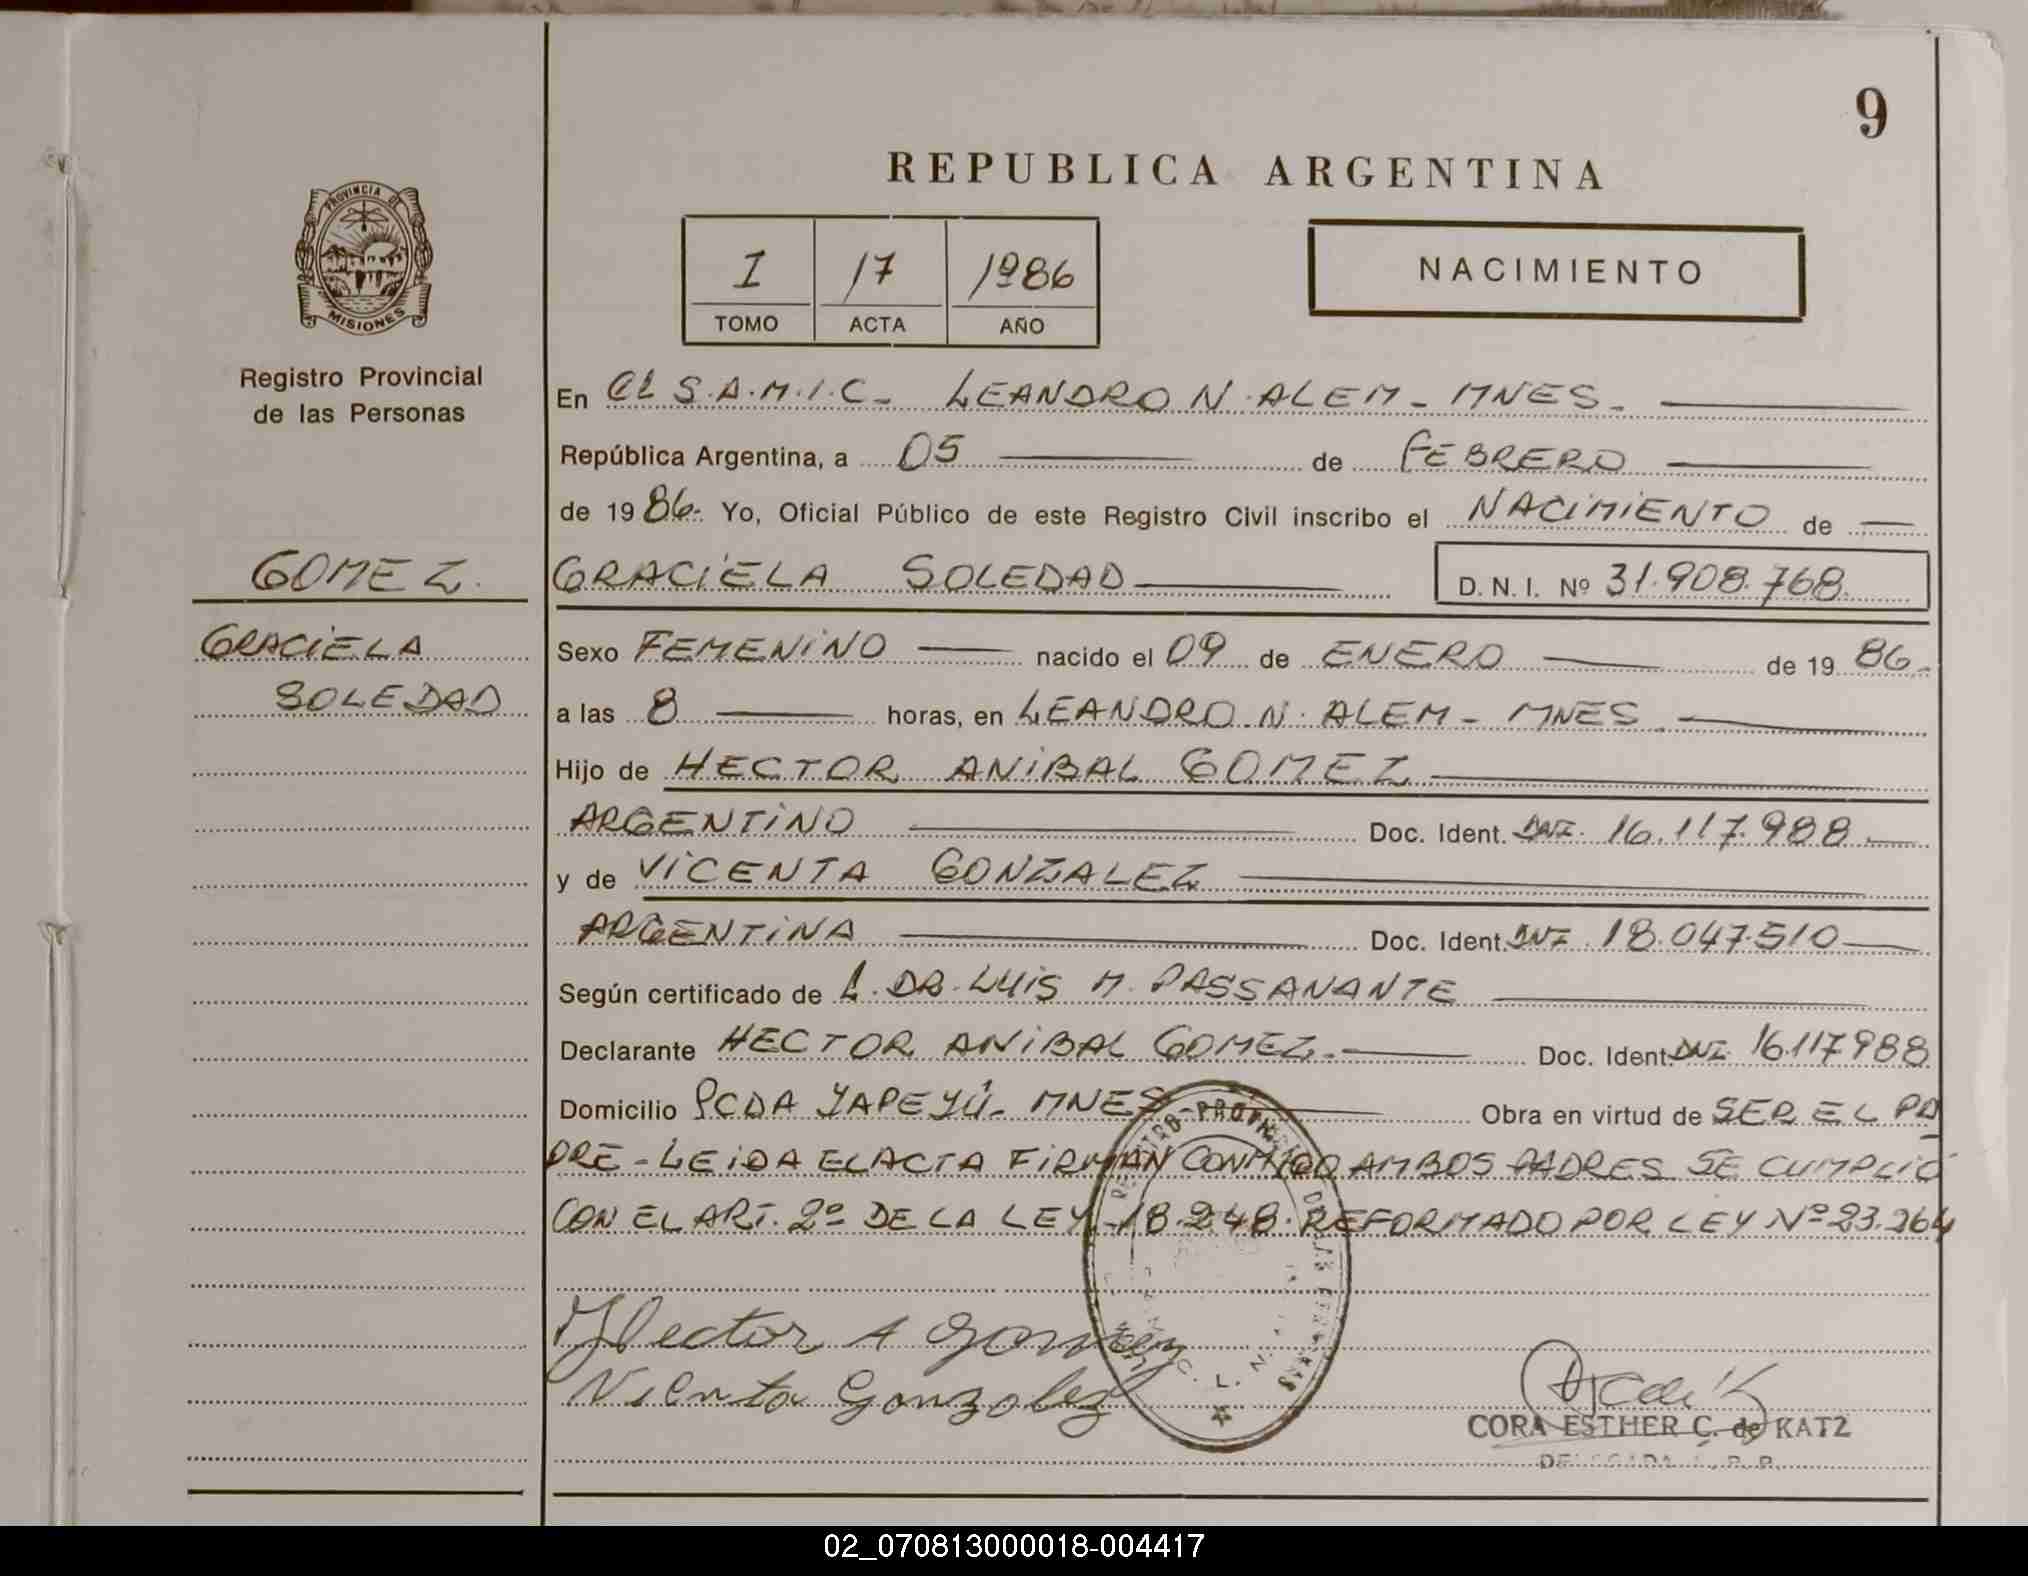 9
REPUBLICA ARGENTINA
PROVINCIA DE
MISIONES
I 17 1986
TOMO ACTA AÑO
NACIMIENTO
Registro Provincial
de las Personas
En el S.A.M.I.C- LEANDRO N. ALEM - MNES.
República Argentina, a 05 de FEBRERO
de 19 86- Yo, Oficial Público de este Registro Civil inscribo el NACIMIENTO de
GOMEZ. GRACIELA SOLEDAD D. N. I. Nº 31.908.768
GRACIELA Sexo FEMENINO nacido el 09 de ENERO de 19 86-
SOLEDAD a las 8 horas, en LEANDRO N. ALEM - MNES
Hijo de HECTOR ANIBAL GOMEZ
ARGENTINO Doc. Ident. DNI. 16.117.988
y de VICENTA GONZALEZ
ARGENTINA Doc. Ident. DNI. 18.047.510
Según certificado de DR. LUIS M. PASSANANTE
Declarante HECTOR ANIBAL GOMEZ. Doc. Ident. DNI. 16117988
Domicilio PCDA YAPEYÚ- MNES Obra en virtud de SER EL PA
DRE - LEIDA EL ACTA FIRMAN CONMIGO AMBOS PADRES SE CUMPLIÓ
CON EL ART. 2º DE LA LEY 18.248. REFORMADO POR LEY Nº 23.264
Hector A Gomez
Gonzolez
CORA ESTHER C. de KATZ
02_070813000018-004417